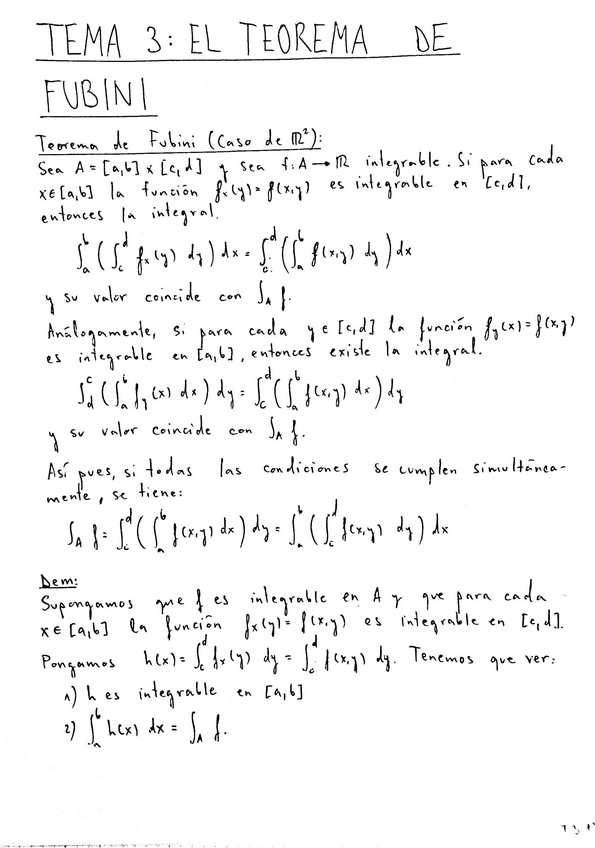 TEMA 3: EL TEOREMA DE
FUBINI
Teorema de Fubini (Caso de ℝ²):
Sea A = [a,b] x [c,d] y sea f: A → ℝ integrable. Si para cada
x∈[a,b] la función fₓ(y) = f(x,y) es integrable en [c,d],
entonces la integral.
∫_a^b (∫_c^d fₓ(y) dy) dx = ∫_c^d (∫_a^b f(x,y) dy) dx
y su valor coincide con ∫_A f.
Análogamente, si para cada y∈[c,d] la función f_y(x) = f(x,y)
es integrable en [a,b], entonces existe la integral.
∫_d^c (∫_a^b f_y(x) dx) dy = ∫_c^d (∫_a^b f(x,y) dx) dy
y su valor coincide con ∫_A f.
Así pues, si todas las condiciones se cumplen simultánea-
mente, se tiene:
∫_A f = ∫_c^d (∫_a^b f(x,y) dx) dy = ∫_a^b (∫_c^d f(x,y) dy) dx
Dem:
Supongamos que f es integrable en A y que para cada
x∈[a,b] la función fₓ(y) = f(x,y) es integrable en [c,d].
Pongamos h(x) = ∫_c^d fₓ(y) dy = ∫_c^d f(x,y) dy. Tenemos que ver:
1) h es integrable en [a,b]
2) ∫_a^b h(x) dx = ∫_A f.